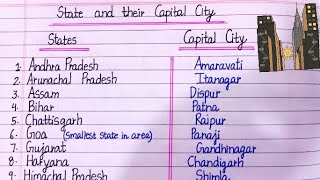 State and their Capital City
States Capital City
1. Andhra Pradesh Amaravati
2. Arunachal Pradesh Itanagar
3. Assam Dispur
4. Bihar Patna
5. Chattisgarh Raipur
6. Goa (Smallest state in area) Panaji
7. Gujarat Gandhinagar
8. Haryana Chandigarh
9. Himachal Pradesh Shimla